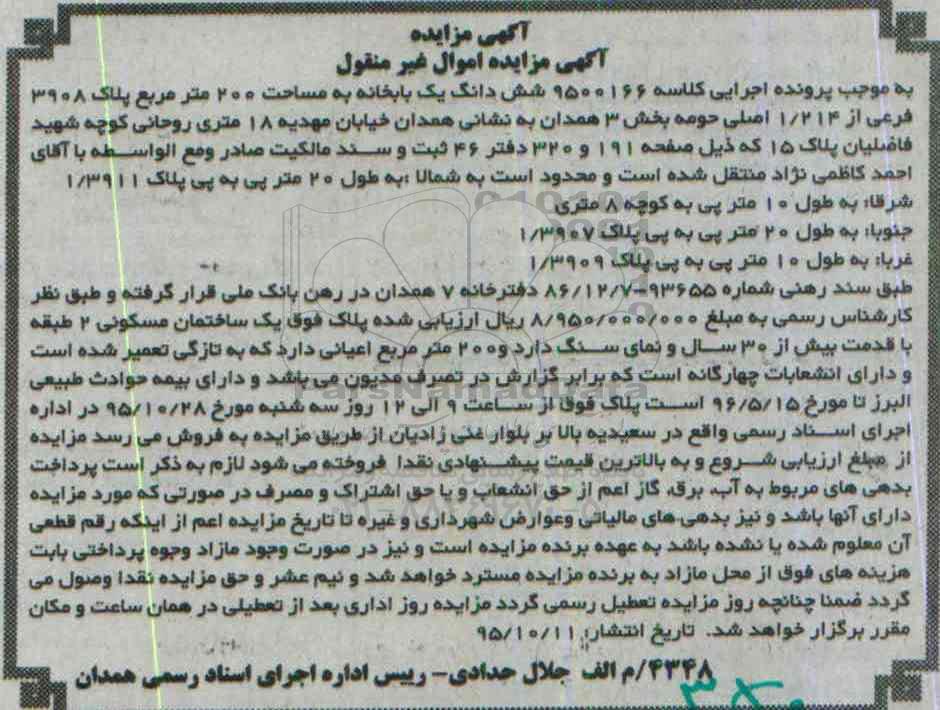 آگهی مزایده
آگهی مزایده اموال غیر منقول
به موجب پرونده اجرایی کلاسه ۹۵۰۰۱۶۶ شش دانگ یک بابخانه به مساحت ۲۰۰ متر مربع پلاک ۳۹۰۸
فرعی از ۱/۲۱۴ اصلی حومه بخش ۳ همدان به نشانی همدان خیابان مهدیه ۱۸ متری روحانی کوچه شهید
فاضلیان پلاک ۱۵ که ذیل صفحه ۱۹۱ و ۳۲۰ دفتر ۴۶ ثبت و سند مالکیت صادر ومع الواسطه با آقای
احمد کاظمی نژاد منتقل شده است و محدود است به شمالا :به طول ۲۰ متر پی به پی پلاک ۱/۳۹۱۱
شرقا: به طول ۱۰ متر پی به کوچه ۸ متری
جنوبا: به طول ۲۰ متر پی به پی پلاک ۱/۳۹۰۷
غربا: به طول ۱۰ متر پی به پی پلاک ۱/۳۹۰۹
طبق سند رهنی شماره ۹۳۶۵۵-۸۶/۱۲/۷ دفترخانه ۷ همدان در رهن بانک ملی قرار گرفته و طبق نظر
کارشناس رسمی به مبلغ ۸/۹۵۰/۰۰۰/۰۰۰ ریال ارزیابی شده پلاک فوق یک ساختمان مسکونی ۲ طبقه
با قدمت بیش از ۳۰ سال و نمای سنگ دارد و۲۰۰ متر مربع اعیانی دارد که به تازگی تعمیر شده است
و دارای انشعابات چهارگانه است که برابر گزارش در تصرف مدیون می باشد و دارای بیمه حوادث طبیعی
البرز تا مورخ ۹۶/۵/۱۵ است پلاک فوق از ساعت ۹ الی ۱۲ روز سه شنبه مورخ ۹۵/۱۰/۲۸ در اداره
اجرای اسناد رسمی واقع در سعیدیه بالا بر بلوار غنی زادیان از طریق مزایده به فروش می رسد مزایده
از مبلغ ارزیابی شروع و به بالاترین قیمت پیشنهادی نقدا فروخته می شود لازم به ذکر است پرداخت
بدهی های مربوط به آب، برق، گاز اعم از حق انشعاب و یا حق اشتراک و مصرف در صورتی که مورد مزایده
دارای آنها باشد و نیز بدهی های مالیاتی وعوارض شهرداری و غیره تا تاریخ مزایده اعم از اینکه رقم قطعی
آن معلوم شده یا نشده باشد به عهده برنده مزایده است و نیز در صورت وجود مازاد وجوه پرداختی بابت
هزینه های فوق از محل مازاد به برنده مزایده مسترد خواهد شد و نیم عشر و حق مزایده نقدا وصول می
گردد ضمنا چنانچه روز مزایده تعطیل رسمی گردد مزایده روز اداری بعد از تعطیلی در همان ساعت و مکان
مقرر برگزار خواهد شد. تاریخ انتشار: ۹۵/۱۰/۱۱
۴۳۴۸/م الف جلال حدادی- رییس اداره اجرای اسناد رسمی همدان
ParsNamadData